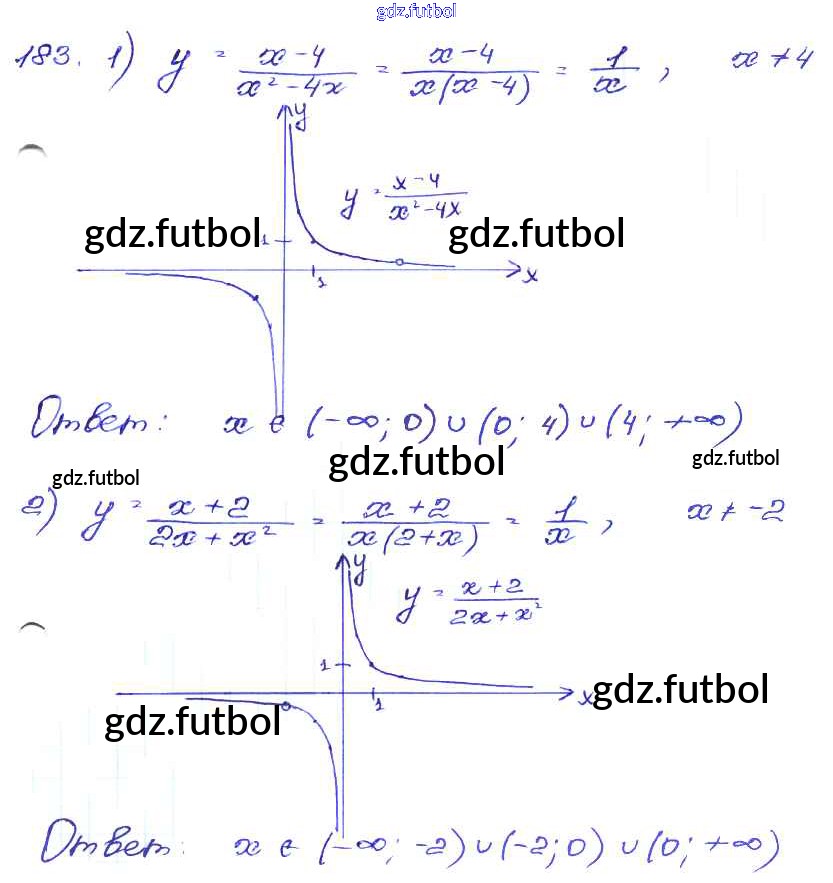 gdz.futbol
183. 1) y = x-4 / x²-4x = x-4 / x(x-4) = 1/x , x ≠ 4
y
y = x-4 / x²-4x
gdz.futbol 1 gdz.futbol
1 x
Ответ: x ∈ (-∞; 0) ∪ (0; 4) ∪ (4; +∞)
gdz.futbol gdz.futbol gdz.futbol
2) y = x+2 / 2x+x² = x+2 / x(2+x) = 1/x , x ≠ -2
y
y = x+2 / 2x+x²
1
1 x gdz.futbol
gdz.futbol
Ответ: x ∈ (-∞; -2) ∪ (-2; 0) ∪ (0; +∞)